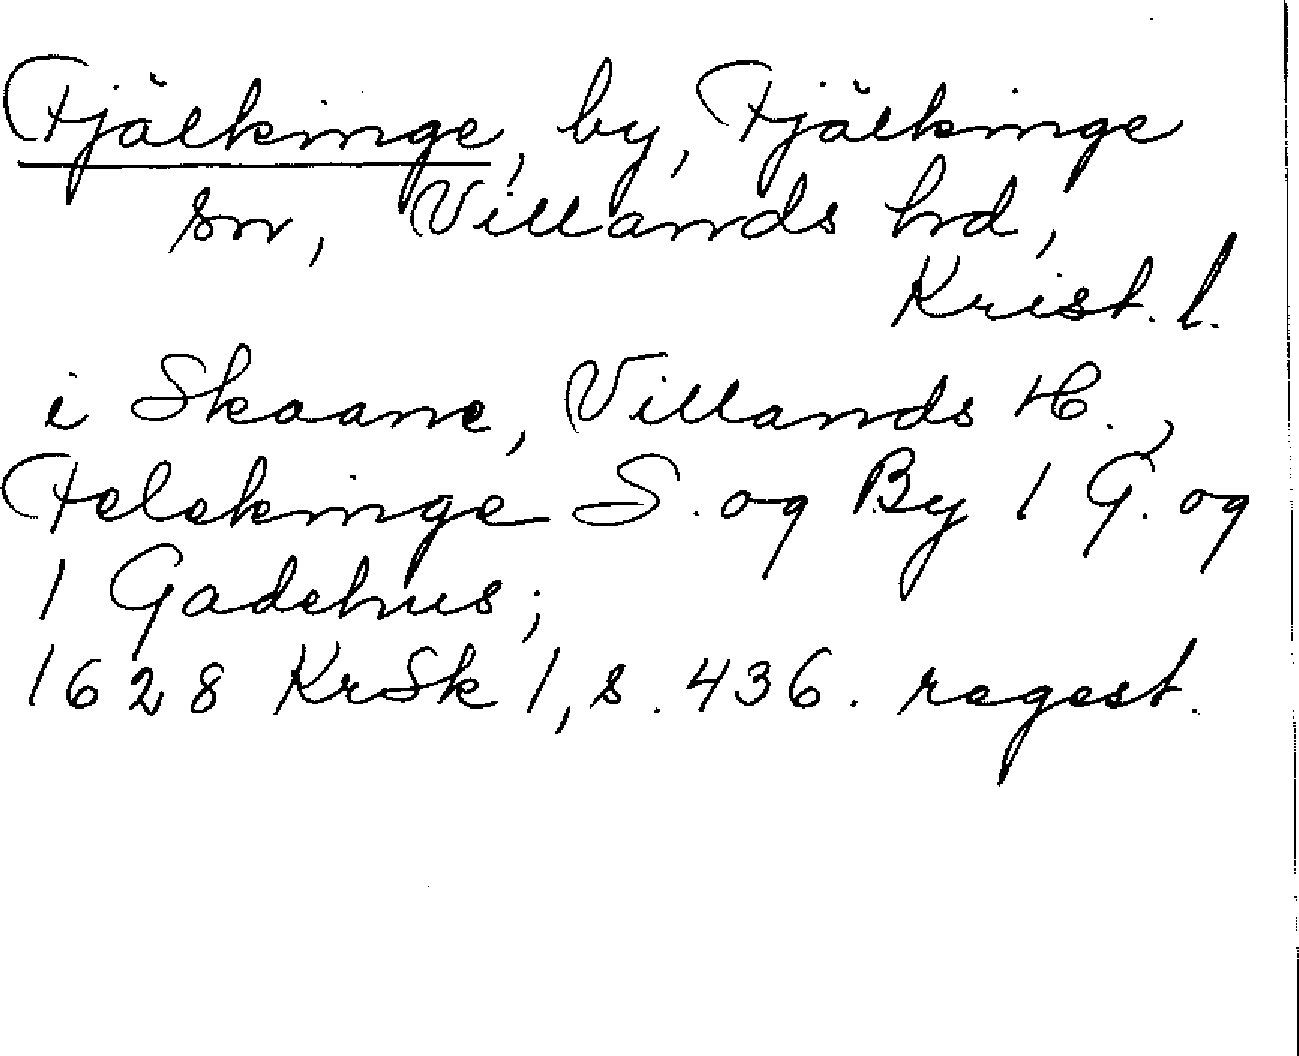 Fjälkinge, by, Fjälkinge
sn, Villands hrd,
Krist. l.
i Skaane, Villands H.,
Felckinge S. og By 1 G. og
1 Gadehus;
1628 KrSk 1, s. 436. regest.